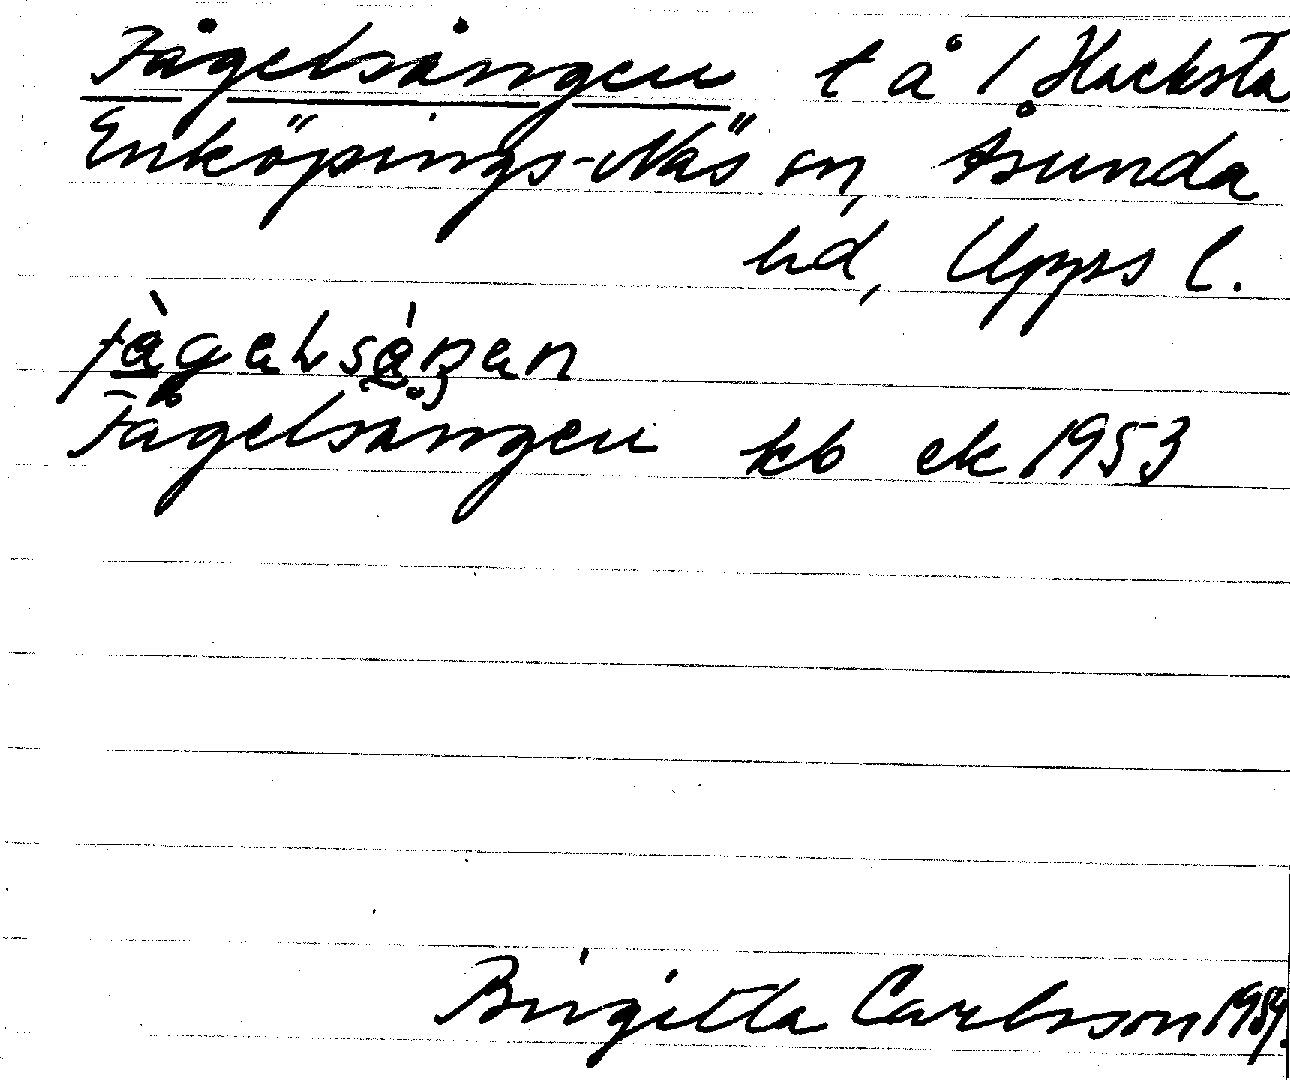 Fågelsången t å / Hacksta
Enköpings-Näs sn, Åsunda
hd, Upps l.
fågəlsåŋən
Fågelsången kb ek 1953
Birgitta Carlsson 1959.